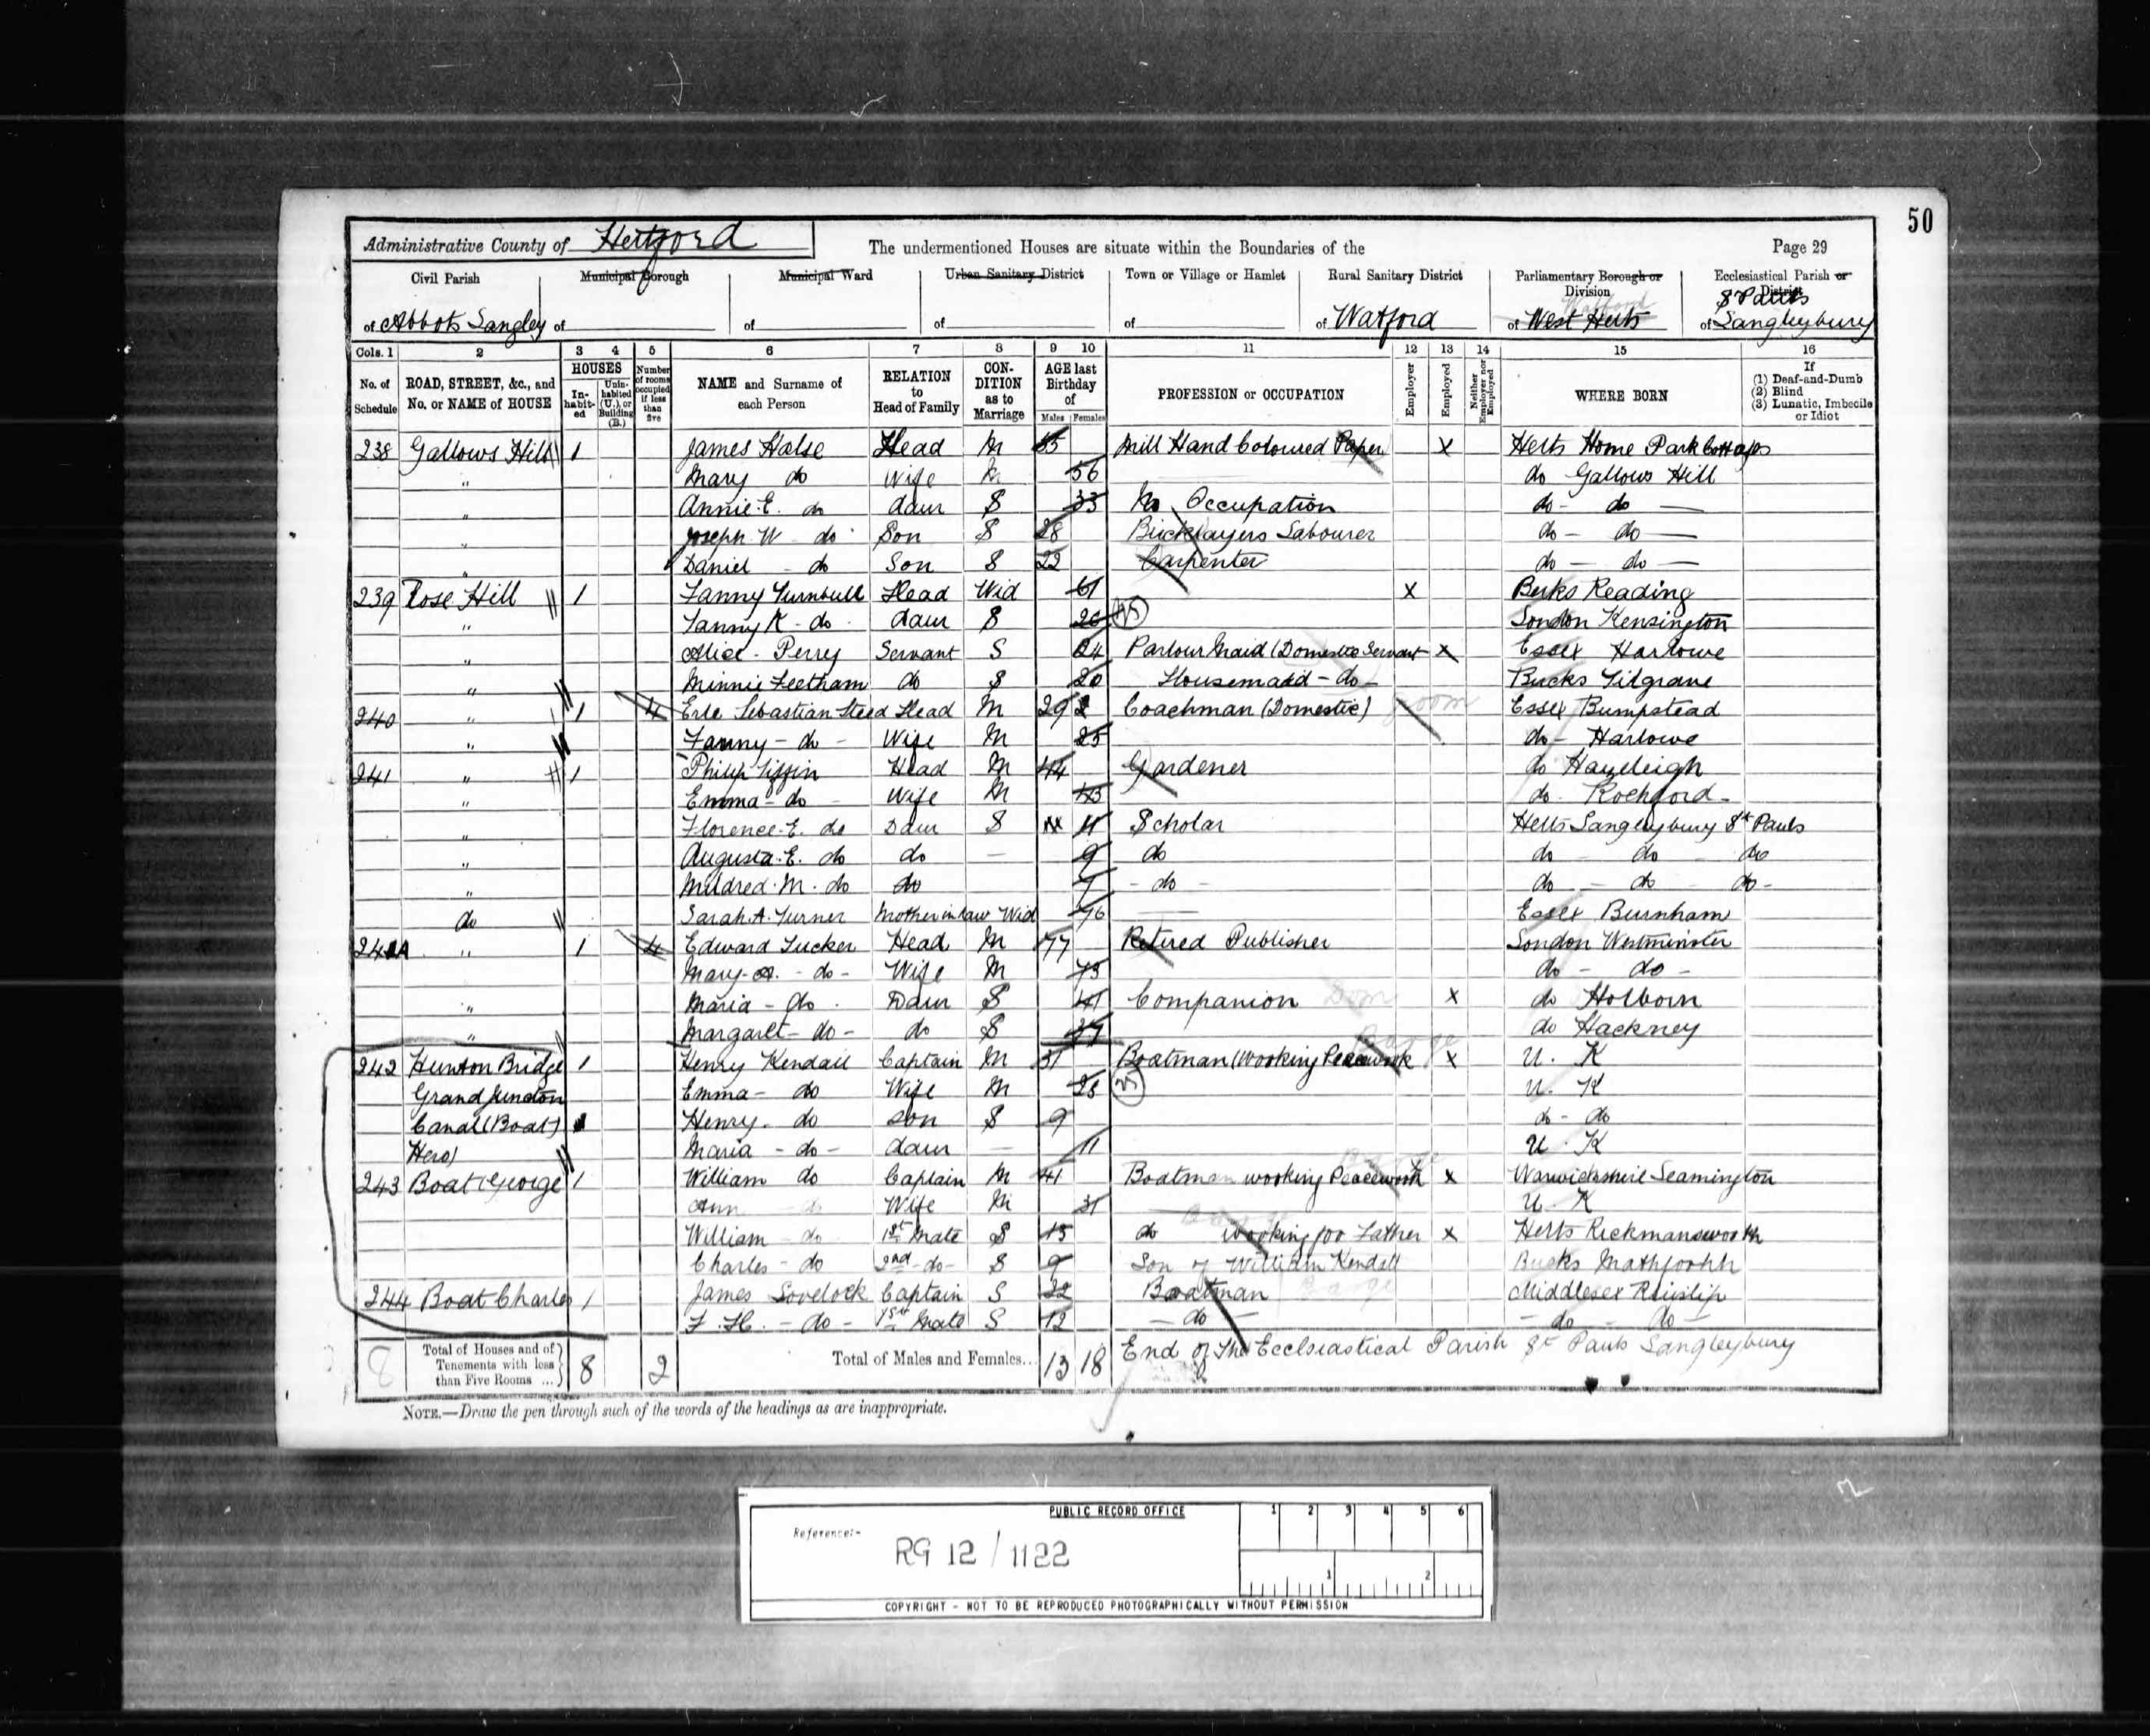 50
Administrative County of Hertford The undermentioned Houses are situate within the Boundaries of the Page 29
Civil Parish Municipal Borough Municipal Ward Urban Sanitary District Town or Village or Hamlet Rural Sanitary District Parliamentary Borough or Division Ecclesiastical Parish or District
of Abbots Langley of of of of of Watford of West Herts of St Pauls Langleybury
Cols. 1 2 3 4 5 6 7 8 9 10 11 12 13 14 15 16
No. of Schedule ROAD, STREET, &c., and No. or NAME of HOUSE HOUSES In-habit-ed Unin-habited (U.), or Building (B.) Number of rooms occupied if less than five NAME and Surname of each Person RELATION to Head of Family CON-DITION as to Marriage AGE last Birthday of Males Females PROFESSION or OCCUPATION Employer Employed Neither Employer nor Employed WHERE BORN If (1) Deaf-and-Dumb (2) Blind (3) Lunatic, Imbecile or Idiot
238 Gallows Hill 1 James Halse Head M 55 Mill Hand Coloured Paper X Herts Home Park Cottages
" Mary do Wife M 56 do Gallows Hill
" Annie E. do daur S 33 No Occupation do - do —
" Joseph W do Son S 28 Bricklayers Labourer do - do —
" Daniel - do Son S 22 Carpenter do - do —
239 Rose Hill 1 Fanny Turnbull Head Wid 61 X Berks Reading
" Fanny K - do daur S 26 London Kensington
" Alice Perry Servant S 24 Parlour Maid (Domestic Servant X Essex Harlowe
" Minnie Feetham do S 20 Housemaid - do Bucks Tilgrave
240 " 1 4 Erle Sebastian Steed Head M 29 Coachman (Domestic) groom Essex Bumpstead
" Fanny - do - Wife M 25 do - Harlowe
241 " 1 Philip Tiffin Head M 44 Gardener do Hazeleigh
" Emma - do Wife M 43 do - Rochford -
" Florence E. do Daur S 11 Scholar Herts Langleybury St Pauls
" Augusta E. do do — 9 do do - do - do
" Mildred M. do do 7 - do - do - do - do -
do Sarah A. Turner Mother in law Wid 76 Essex Burnham
241A " 1 4 Edward Tucker Head M 77 Retired Publisher London Westminster
Mary A. - do - Wife M 73 do - do -
" Maria - do Daur S 41 Companion Dom X do Holborn
" Margaret - do - do S do Hackney
242 Hunton Bridge 1 Henry Kendall Captain M 31 Boatman (Working Peacework Barge X U. K
Grand Junction Emma - do Wife M 28 U. K
Canal (Boat) Henry - do son S 9 do - do
Hero) Maria - do - daur — 11 U. K
243 Boat (George 1 William do Captain M 41 Boatman working Peacework Barge X Warwickshire Leamington
Ann do Wife M 31 U. K
William - do 1st Mate S 15 do working for Father X Herts Rickmansworth
Charles - do 2nd - do - S 9 Son of William Kendall Bucks
244 Boat Charles 1 James Lovelock Captain S 22 Boatman Barge Middlesex Ruislip
F. H. - do - 1st Mate S 12 - do - - do - do -
8 Total of Houses and of Tenements with less than Five Rooms ... 8 2 Total of Males and Females... 13 18 End of the Ecclsiastical Parish St Pauls Langleybury
NOTE.—Draw the pen through such of the words of the headings as are inappropriate.
PUBLIC RECORD OFFICE 1 2 3 4 5 6
Reference:-
RG 12 / 1122
1 2
COPYRIGHT - NOT TO BE REPRODUCED PHOTOGRAPHICALLY WITHOUT PERMISSION